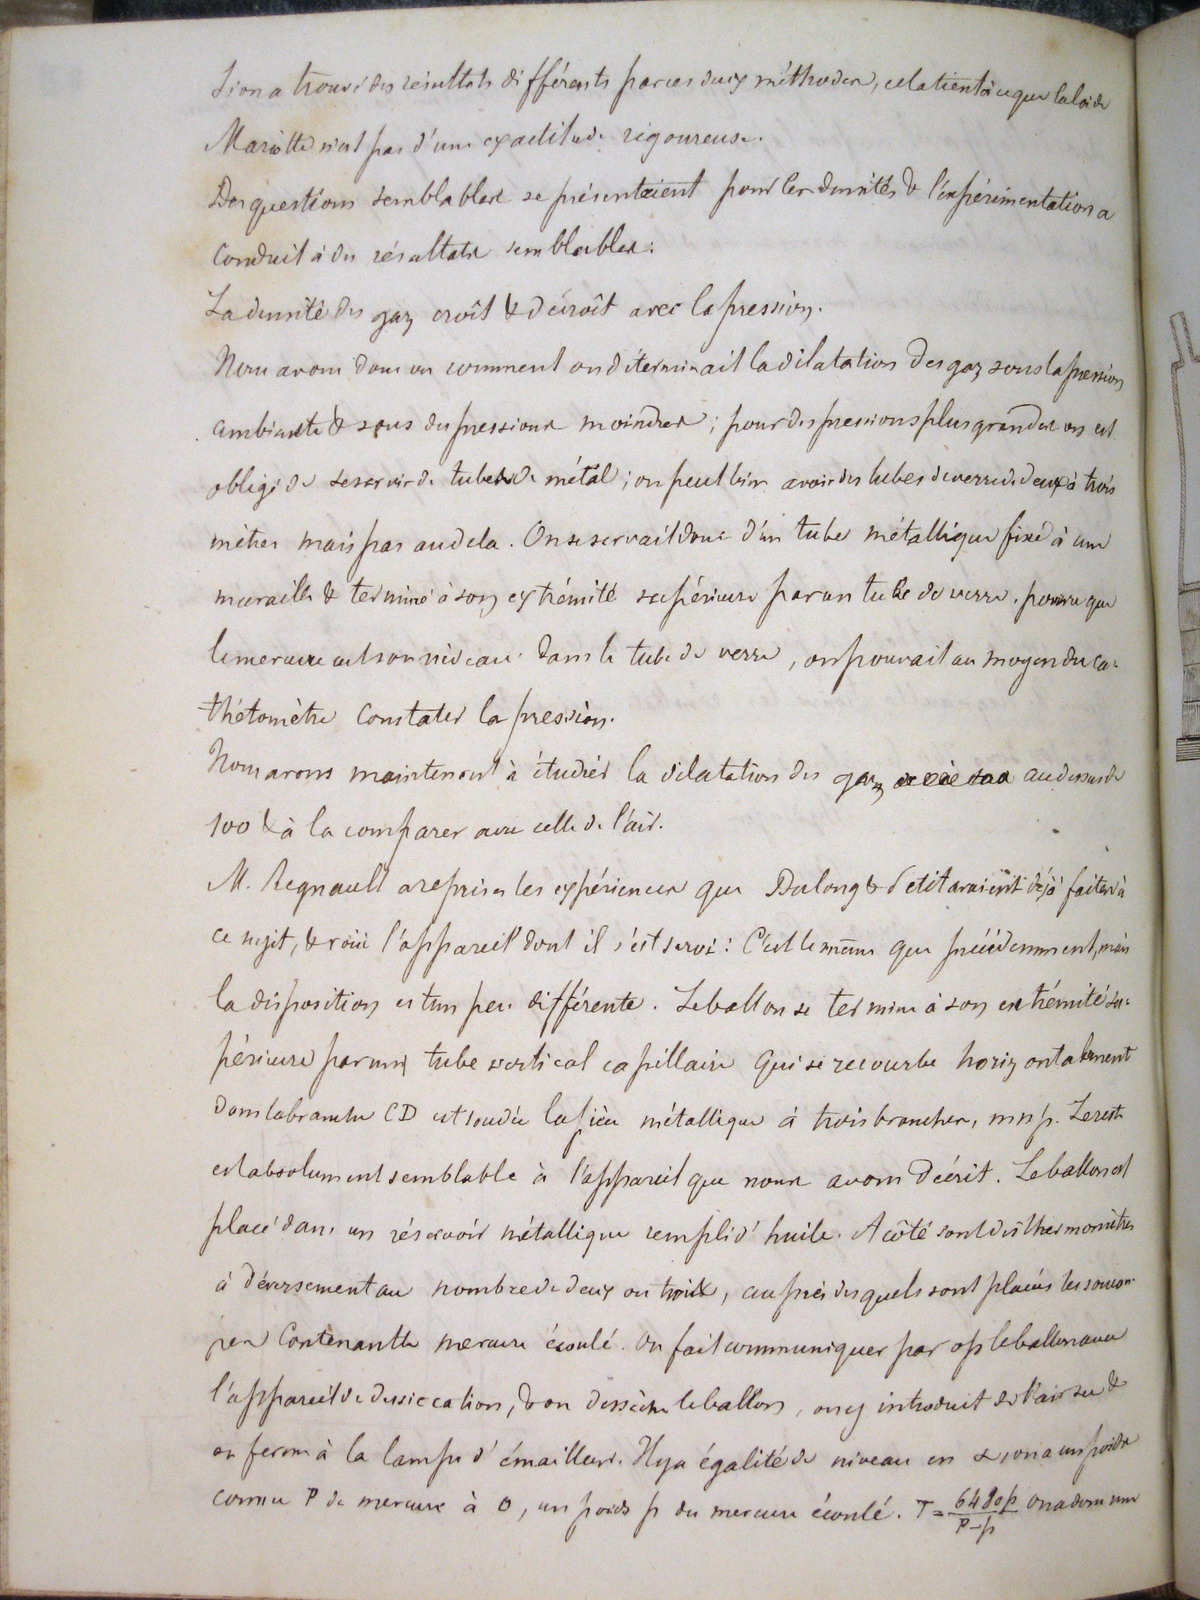 Si on a trouvé des résultats différents par ces deux méthodes, cela tient à ce que la loi de
Mariotte n'est pas d'une exactitude rigoureuse.
Des questions semblables se présentaient pour les densités & l'expérimentation a
conduit à des résultats semblables:
La densité des gaz croît & décroît avec la pression.
Nous avons donc vu comment on déterminait la dilatation des gaz sous la pression
ambiante & sous des pressions moindres; pour des pressions plus grandes on est
obligé de se servir de tubes de métal; on peut bien avoir des tubes de verre de deux à trois
mètres mais pas au dela. On se servait donc d'un tube métallique fixé à une
muraille & terminé à son extrémité supérieure par un tube de verre. pourvu que
le mercure eut son niveau dans le tube de verre, on pouvait au moyen du ca-
thétomètre constater la pression.
Nous avons maintenant à étudier la dilatation des gaz au dessus de
100 & à la comparer avec celle de l'air.
M. Regnault a repris les expériences que Dulong & Petit avaient déjà faites à
ce sujet, & voici l'appareil dont il s'est servi: C'est le même que précédemment, mais
la disposition est un peu différente. Le ballon se termine à son extrémité su-
périeure par un tube vertical capillaire qui se recourbe horizontalement
dans la branche CD est soudée la pièce métallique à trois branches, mnp. Le reste
est absolument semblable à l'appareil que nous avons décrit. Le ballon est
placé dans un réservoir métallique rempli d'huile. A côté sont des thermomètres
à déversement au nombre de deux ou trois, auprès desquels sont placées les soucou-
pes contenant le mercure écoulé. On fait communiquer par op le ballon avec
l'appareil de dessiccation, & on dessèche le ballon, on y introduit de l'air sec &
on ferme à la lampe d'émailleur. Il y a égalité de niveau en α, on a un poids
connu P de mercure à 0, un poids p du mercure écoulé. T = 6480p / P-p on a donc une